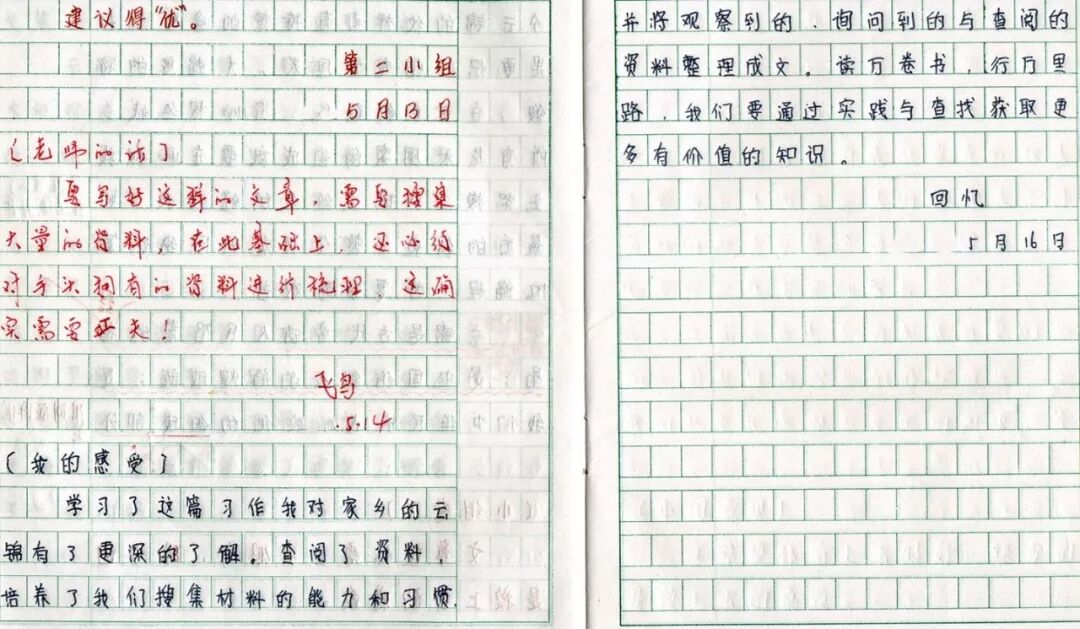 建议得“优”。
第二小组
5月13日
〔老师的话〕
要写好这样的文章，需要搜集
大量的资料，在此基础上，还必须
对手头拥有的资料进行梳理，这确
实需要功夫！
飞鸟
5.14
〔我的感受〕
学习了这篇习作我对家乡的云
锦有了更深的了解。查阅了资料，
培养了我们搜集材料的能力和习惯，
并将观察到的、询问到的与查阅的
资料整理成文。读万卷书，行万里
路，我们要通过实践与查找获取更
多有价值的知识。
回忆
5月16日